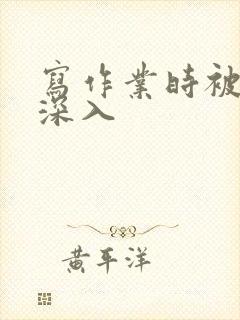 寫作業時被
深入
黄平洋